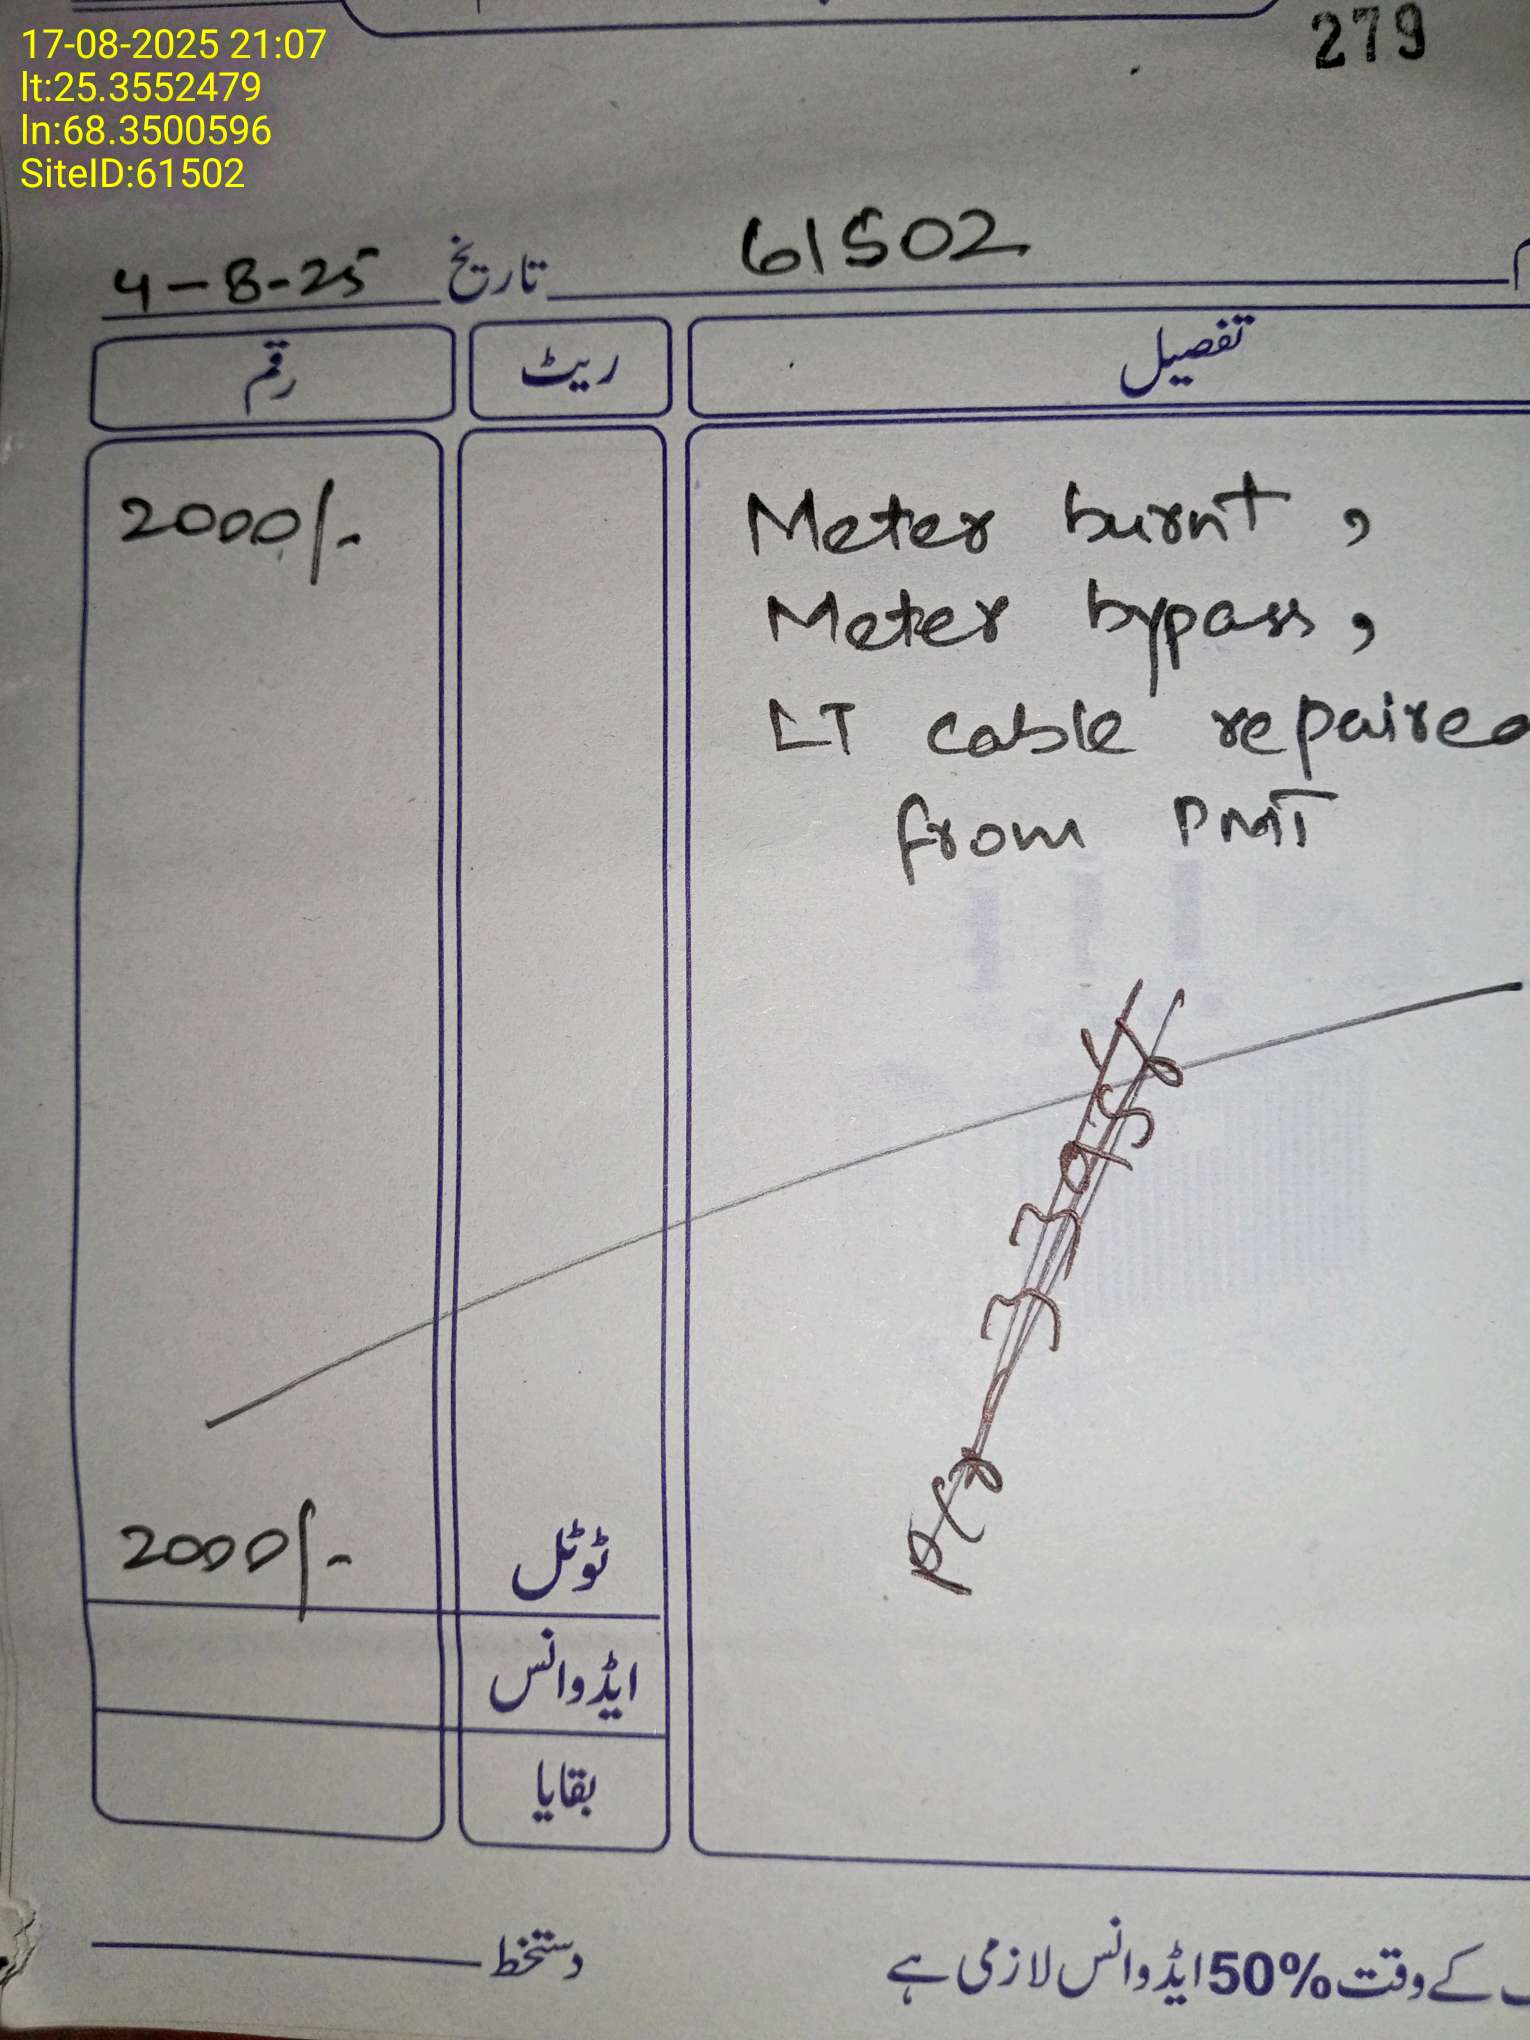 17-08-2025 21:07
lt:25.3552479
ln:68.3500596
SiteID:61502
279
61502 تاریخ 4-8-25
تفصیل ریٹ رقم
Meter burnt, 2000/-
Meter bypass,
LT cable repaired
from PMT
ٹوٹل 2000/-
ایڈوانس
بقایا
دستخط
کے وقت 50% ایڈوانس لازمی ہے